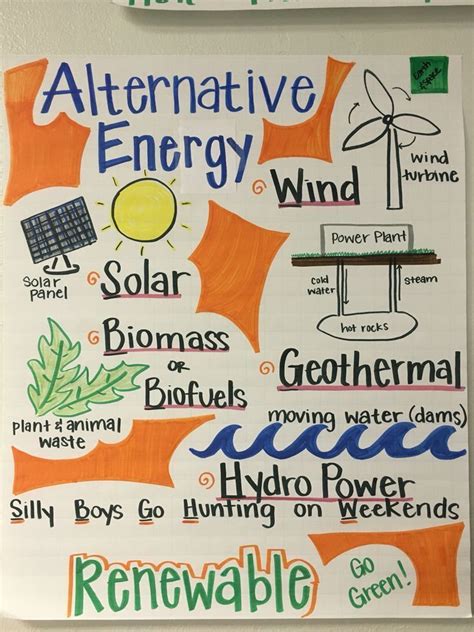 Alternative
Energy
Earth
& Space
Wind
wind
turbine
Solar
panel
Solar
Power Plant
cold
water
steam
hot rocks
Biomass
or
Biofuels
plant & animal
waste
Geothermal
moving water (dams)
Hydro Power
Silly Boys Go Hunting on Weekends
Renewable
Go
Green!